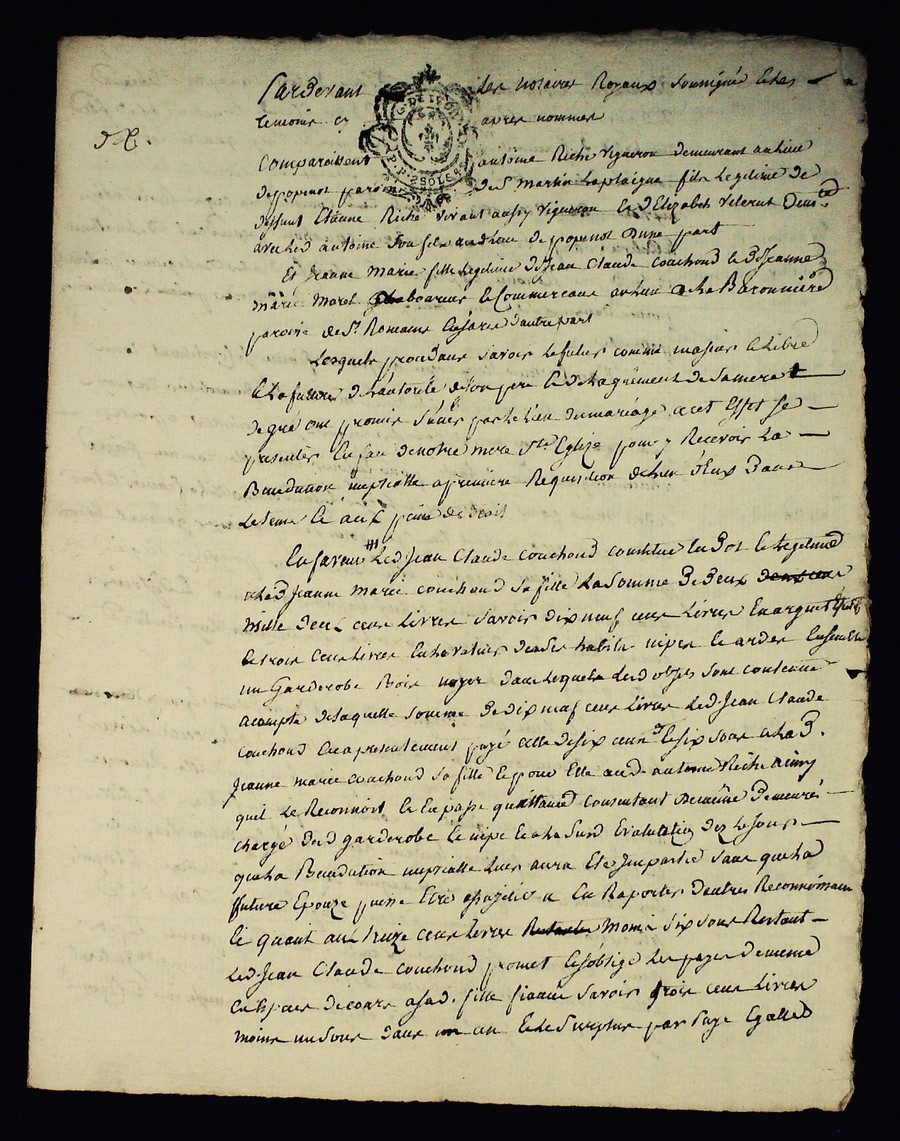 Pardevant les notaires Royaux soussigné et les
temoins cy apres nommes
Comparoissent antoine Riche vigneron demeurant au lieu
G. DE LYON
P. P. 2 SOLS
de popenot paroisse de St martin Laplaigne fils Legitime de
deffunt Etienne Riche vivant aussy vigneron et d'Elizabet
avec led antoine son fils aud lieu de popenot d'une part
Et Jeanne marie fille Legitime de Jean Claude couchoud et de Jeanne
marie morel et Commercans au lieu de La Baronniere
paroisse de St Romains d'autre part
Lesquels procedans savoir Le futur comme majeur et Libre
et La future de L'autorité de son pere et de L'agrément de sa mere
de gré ont promis s'unir par Le Lien du mariage a cet Effet se
presenter En face de notre mere Ste Eglize pour y Recevoir La
Benediction nuptialle a premiere Requisition de L'un d'Eux dans
Le tems et aux peine de droit
En faveur Led Jean Claude couchoud constitue En Dot
a Lad Jeanne marie couchoud sa fille La somme de deux
mille deux cens Livres savoir dix neuf cens Livres En argent
et trois cens Livres En La valeur de ses habits nipes et ardes Ensemble
un Garderobe Bois noyer dans Lequel Lesd objets sont contenus
acompte de laquelle somme de dix neuf cens Livres Led. Jean Claude
couchoud En a presentement payé celle de six cens Lt six sous a Lad.
Jeanne marie couchoud sa fille Et pour Elle aud antoine Riche ainsy
quil Le Reconnoit Et En passe quittance consentant de meme demeuré
chargé dud garderobe Et nipe Et a La susd Evaluation dez Le jour
que La Benediction nuptialle Leur aura Eté Impartie sans que La
future Epouze puisse Etre En Raporter d'autres Reconnoissance
Et quant aux treize cens Livres moins six sous Restant
Led. Jean Claude couchoud promet Et s'oblige Les payer de meme
En Espece de cours a sad. fille fiancée savoir trois cens Livres
moins un sous dans un an Et Le Surplus par paye Egalle